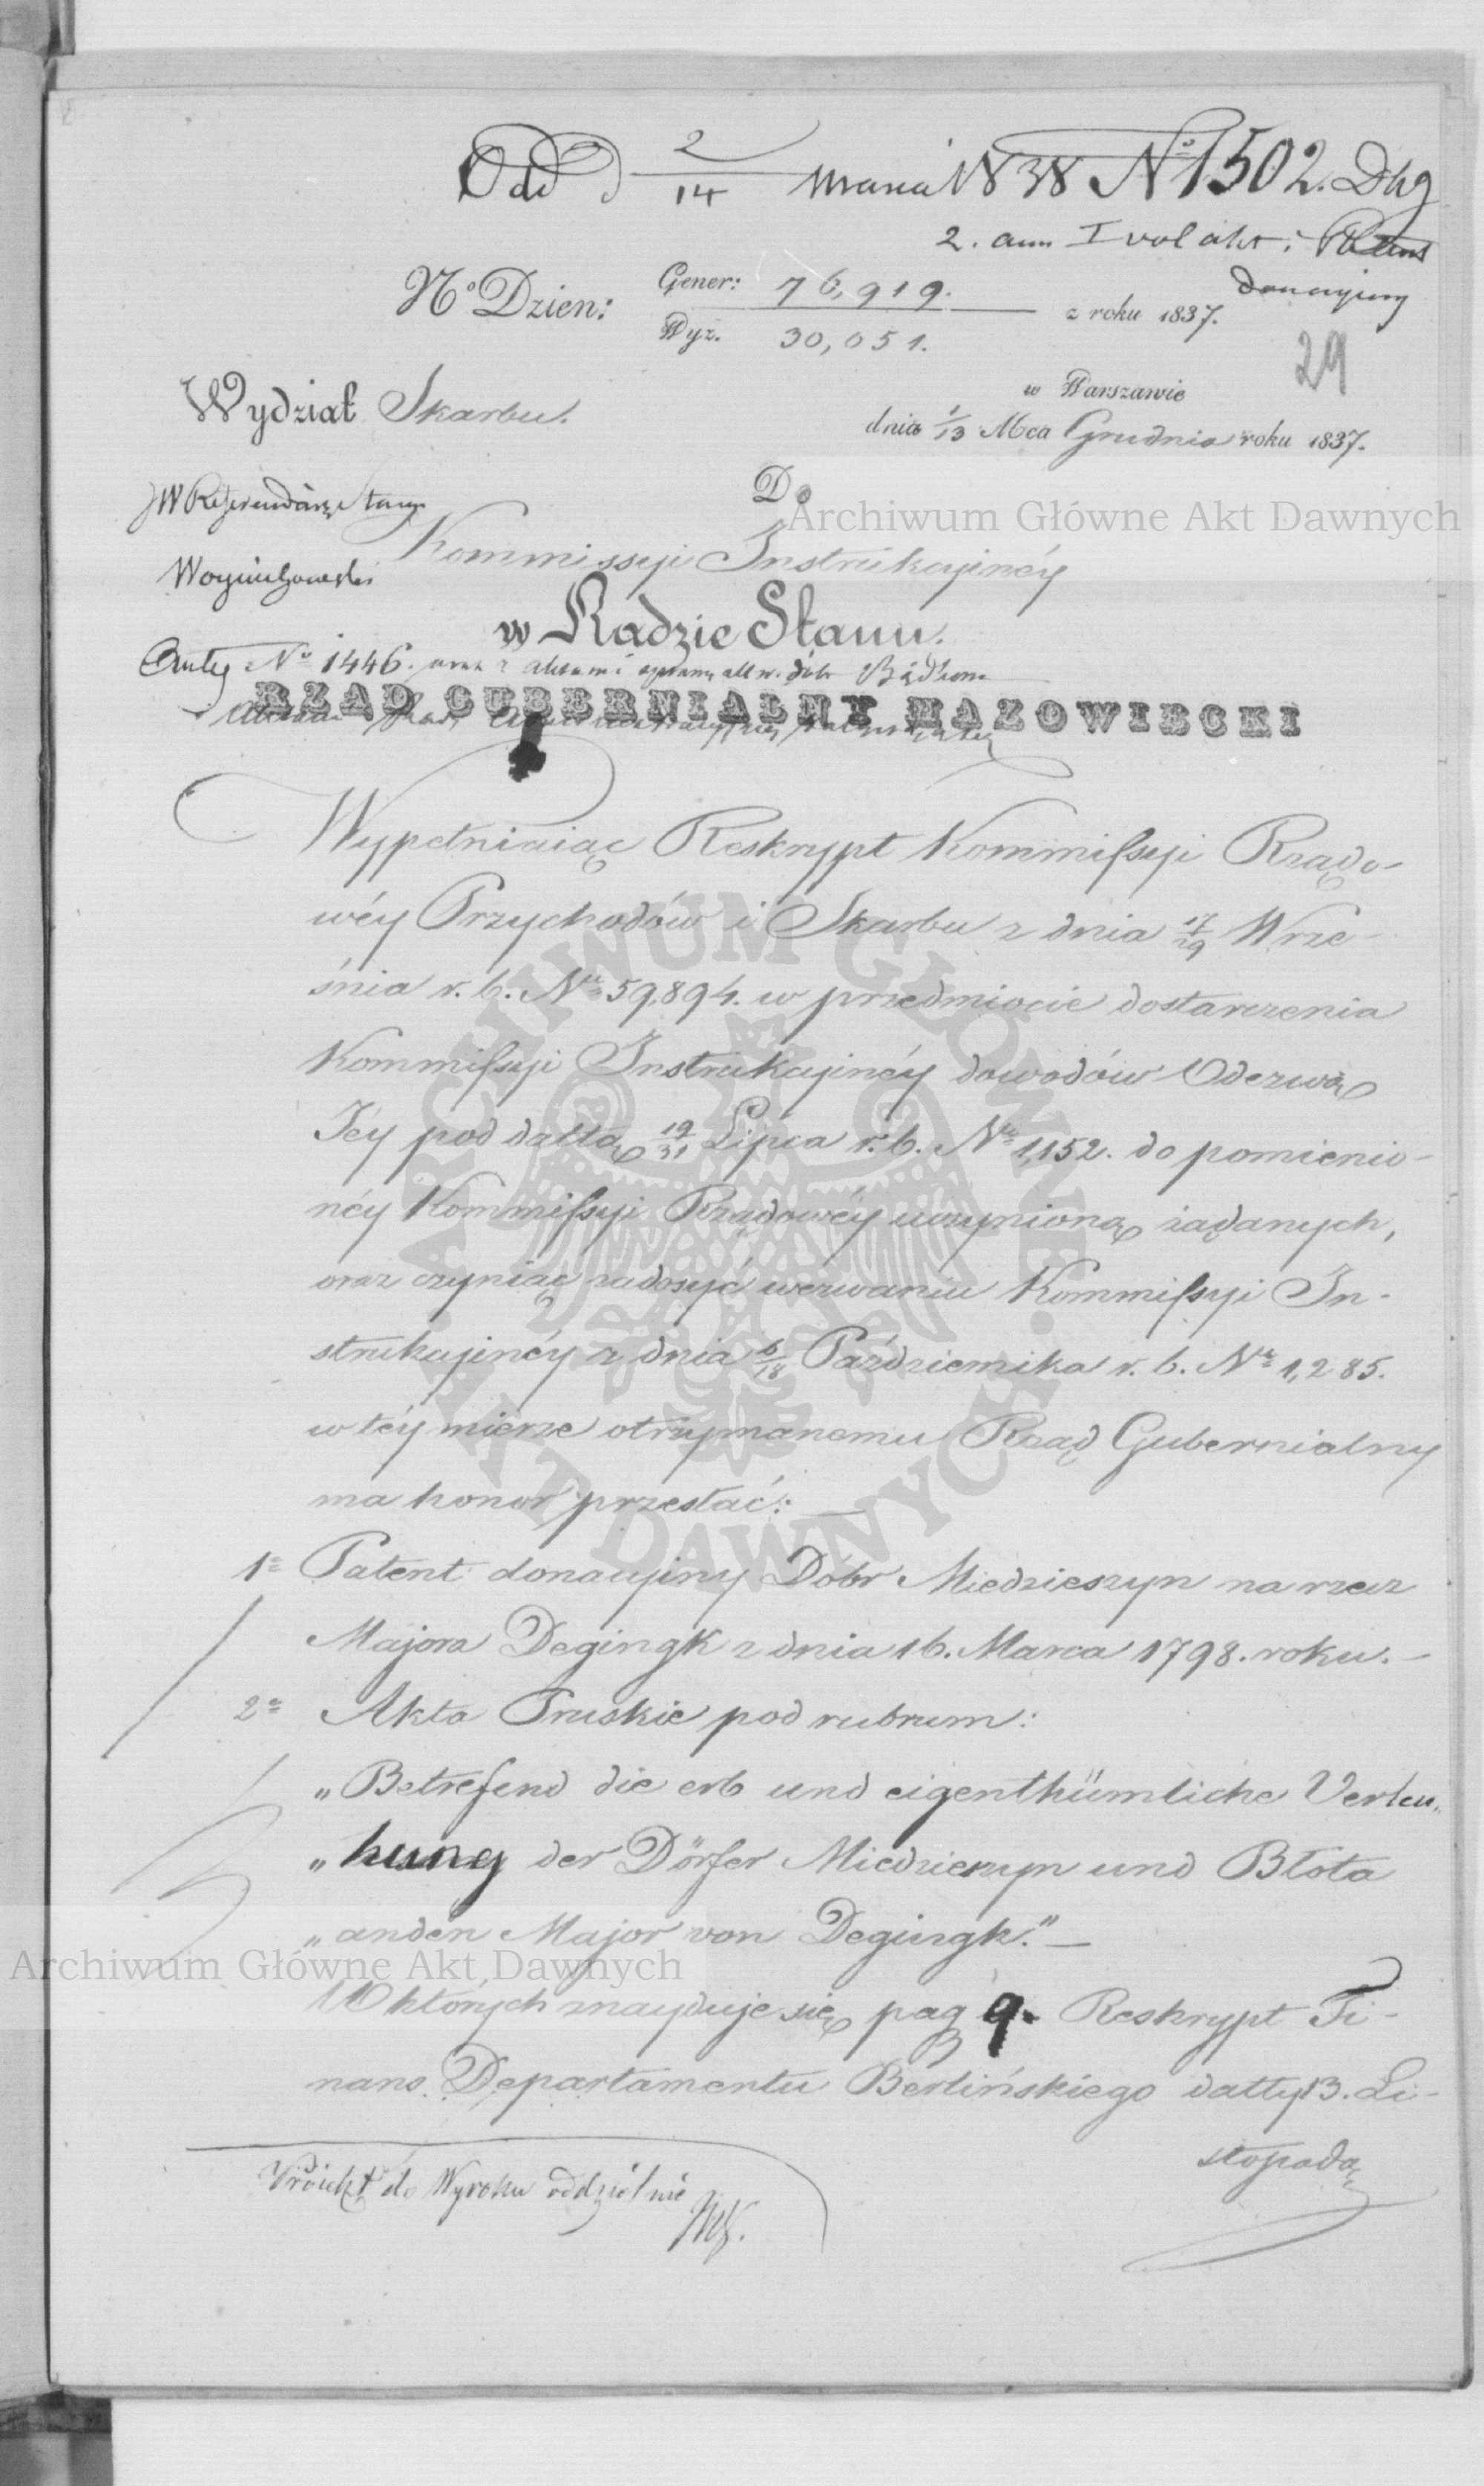 Odd 2/14 Marca 1838 No 1502. Dhg
2. ann I vol akt i
donacyiny
No Dzien: Gener: 76,919. z roku 1837.
Wyz. 30,051.
29
w Warszawie
Wydział Skarbu.
dnia 1/13 Mca Grudnia roku 1837.
Do
Archiwum Główne Akt Dawnych
Kommissyi Instrukcyinéy
w Radzie Stanu.
No 1446. oraz z aktami
RZĄD GUBERNIALNY MAZOWIECKI
Wypełniaiąc Reskrypt Kommissyi Rządo-
wéy Przychodów i Skarbu z dnia 17/29 Wrze-
śnia r. b. No 59,894. w przedmiocie dostarczenia
Kommissyi Instrukcyinéy dowodów Odezwą
Jéy pod dattą 19/31 Lipca r. b. No 1,152. do pomienio-
néy Kommissyi Rządowéy uczynioną żądanych,
oraz czyniąc zadosyć wezwaniu Kommissyi In-
strukcyinéy z dnia 6/18 Października r. b. No 1,285.
w téy mierze otrzymanemu Rząd Gubernialny
ma honor przesłać: —
1o Patent donacyiny Dóbr Miedzieszyn na rzecz
Majora Degingk z dnia 16. Marca 1798. roku. —
2o Akta Pruskie pod rubrum:
„Betrefend die erb und eigenthümliche Verleu„
„hung der Dörfer Miedzieszyn und Błota
„an den Major von Degingk." —
Archiwum Główne Akt Dawnych
W których znayduje się pag 9. Reskrypt Fi-
nans. Departamentu Berlińskiego datty 13. Li-
stopada
Proiekt do Wyroku oddzielnie